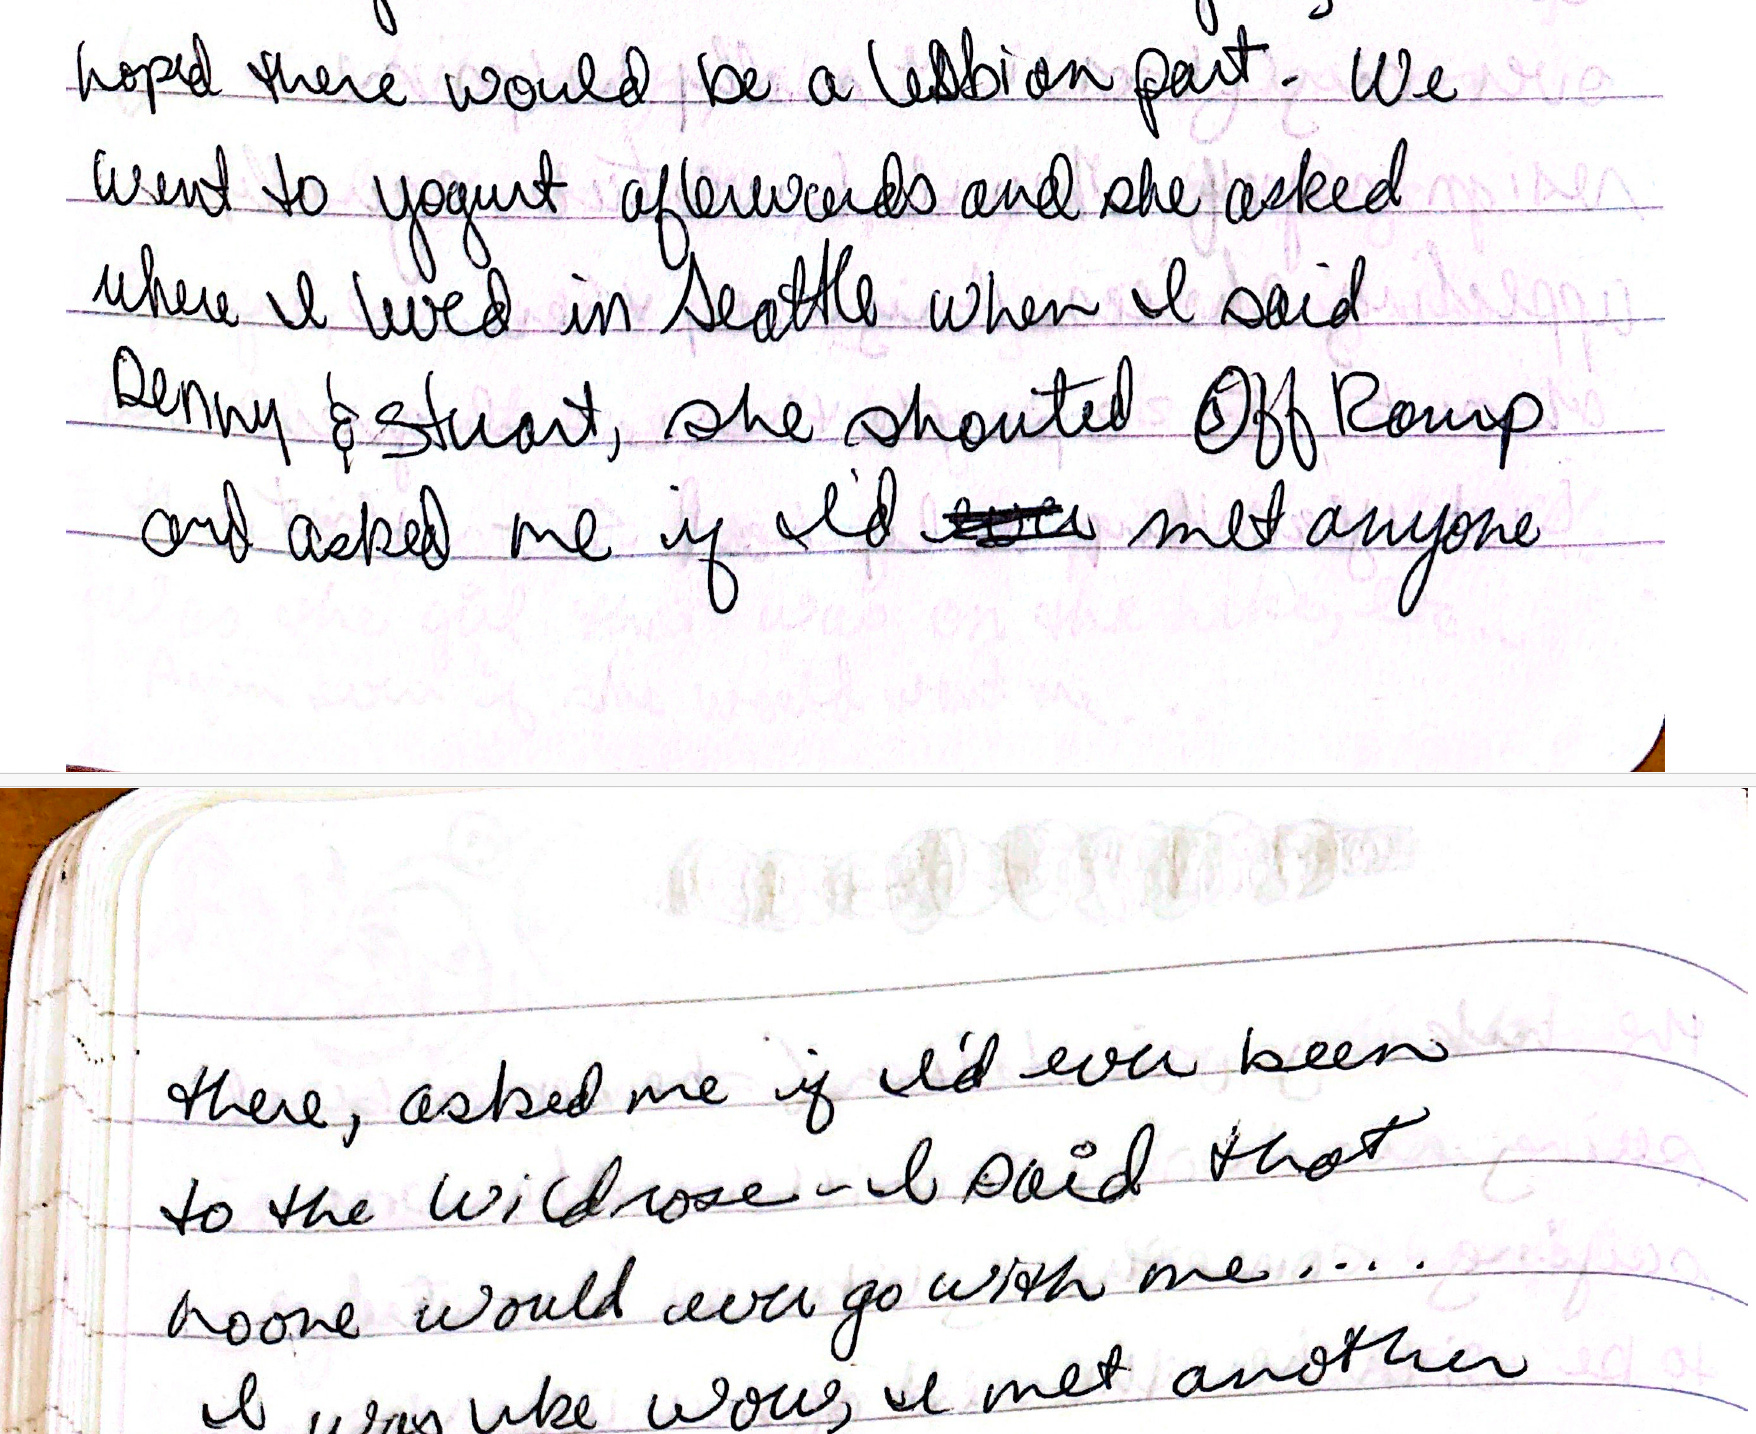 hoped there would be a lesbian part. We
went to yogurt afterwards and she asked
where I lived in Seattle when I said
Denny & Stuart, she shouted Off Ramp
and asked me if I'd ever met anyone
there, asked me if I'd ever been
to the Wildrose - I said that
noone would ever go with me....
I was like wow, I met another